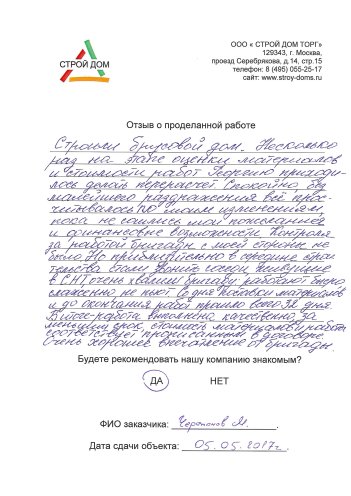 СТРОЙ ДОМ
ООО « СТРОЙ ДОМ ТОРГ»
129343, г. Москва,
проезд Серебрякова, д.14, стр.15
телефон: 8 (495) 055-25-17
сайт: www.stroy-doms.ru
Отзыв о проделанной работе
Строили брусовой дом. Несколько
раз на этапе оценки материалов
и стоимости работ Георгию приходи-
лось делать перерасчет. Спокойно, без
малейшего раздражения всё прос-
читывалось по моим изменениям,
пока не сошлись мои пожелания
и финансовые возможности. Контроля
за работой бригады с моей стороны не
было. Но приблизительно в середине строи
тельства стали звонить соседи живущие
в СНТ очень хвалили бригаду: работают быстро,
слаженно, не пьют. Со дня завоза материалов
и до окончания работ прошло всего 32 дня.
В итоге - работа выполнена качественно, за
меньший срок, стоимость материалов и работы
соответствует прописанным в договоре.
Очень хорошее впечатление от бригады.
Будете рекомендовать нашу компанию знакомым?
ДА НЕТ
ФИО заказчика: М.
Дата сдачи объекта: 05.05.2017г.